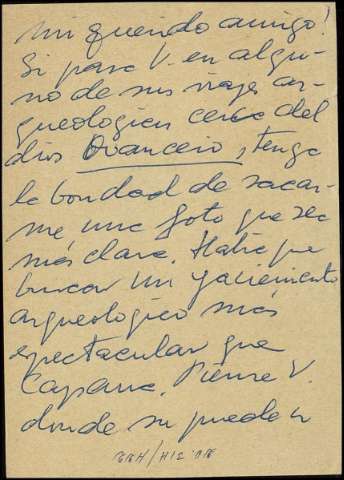 mi querido amigo!
Si pasa V. en algu-
no de sus viajes ar-
queologicos cerca del
dios Ovanceio, tenga
la bondad de sacar-
me una foto que sea
más clara. Habie que
buscar un yacimiento
arqueológico más
espectacular que
Caparra. Piense V.
donde se puede ir